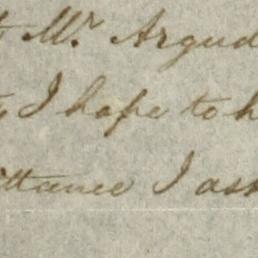 t Mr. Argud
I hope to h
ttance I ass